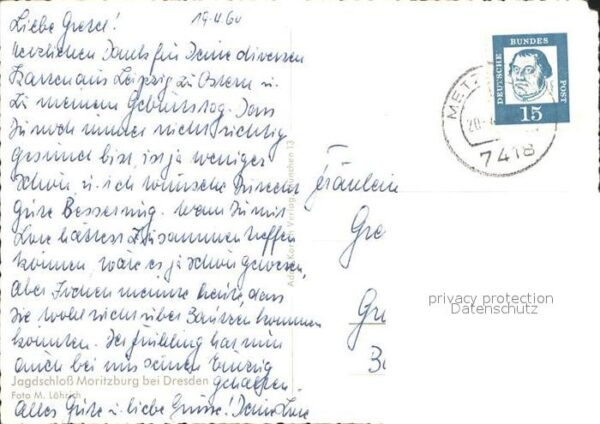 19.4.60
Liebe Gretel!
Herzlichen Dank für Deine diversen
Karten aus Leipzig zu Ostern u.
zu meinem Geburtstag. Dass
Du noch immer nicht richtig
gesund bist, ist ja weniger
schön u. ich wünsche Dir
gute Besserung. Wenn Du mit
hättest zusammen treffen
können, wäre es ja schön gewesen,
Aber Jochen meinte heute, dass
Sie wohl nicht über Bautzen kommen
könnten. Der Frühling hat nun
auch bei uns seinen Einzug
gehalten.
Alles Gute u. liebe Grüsse! Deine
Fräulein
Gre
Gr
Jagdschloß Moritzburg bei Dresden
Foto M. Löhrich
Verlag, München 13
DEUTSCHE BUNDES POST
15
METZ
20.
7418
privacy protection
Datenschutz